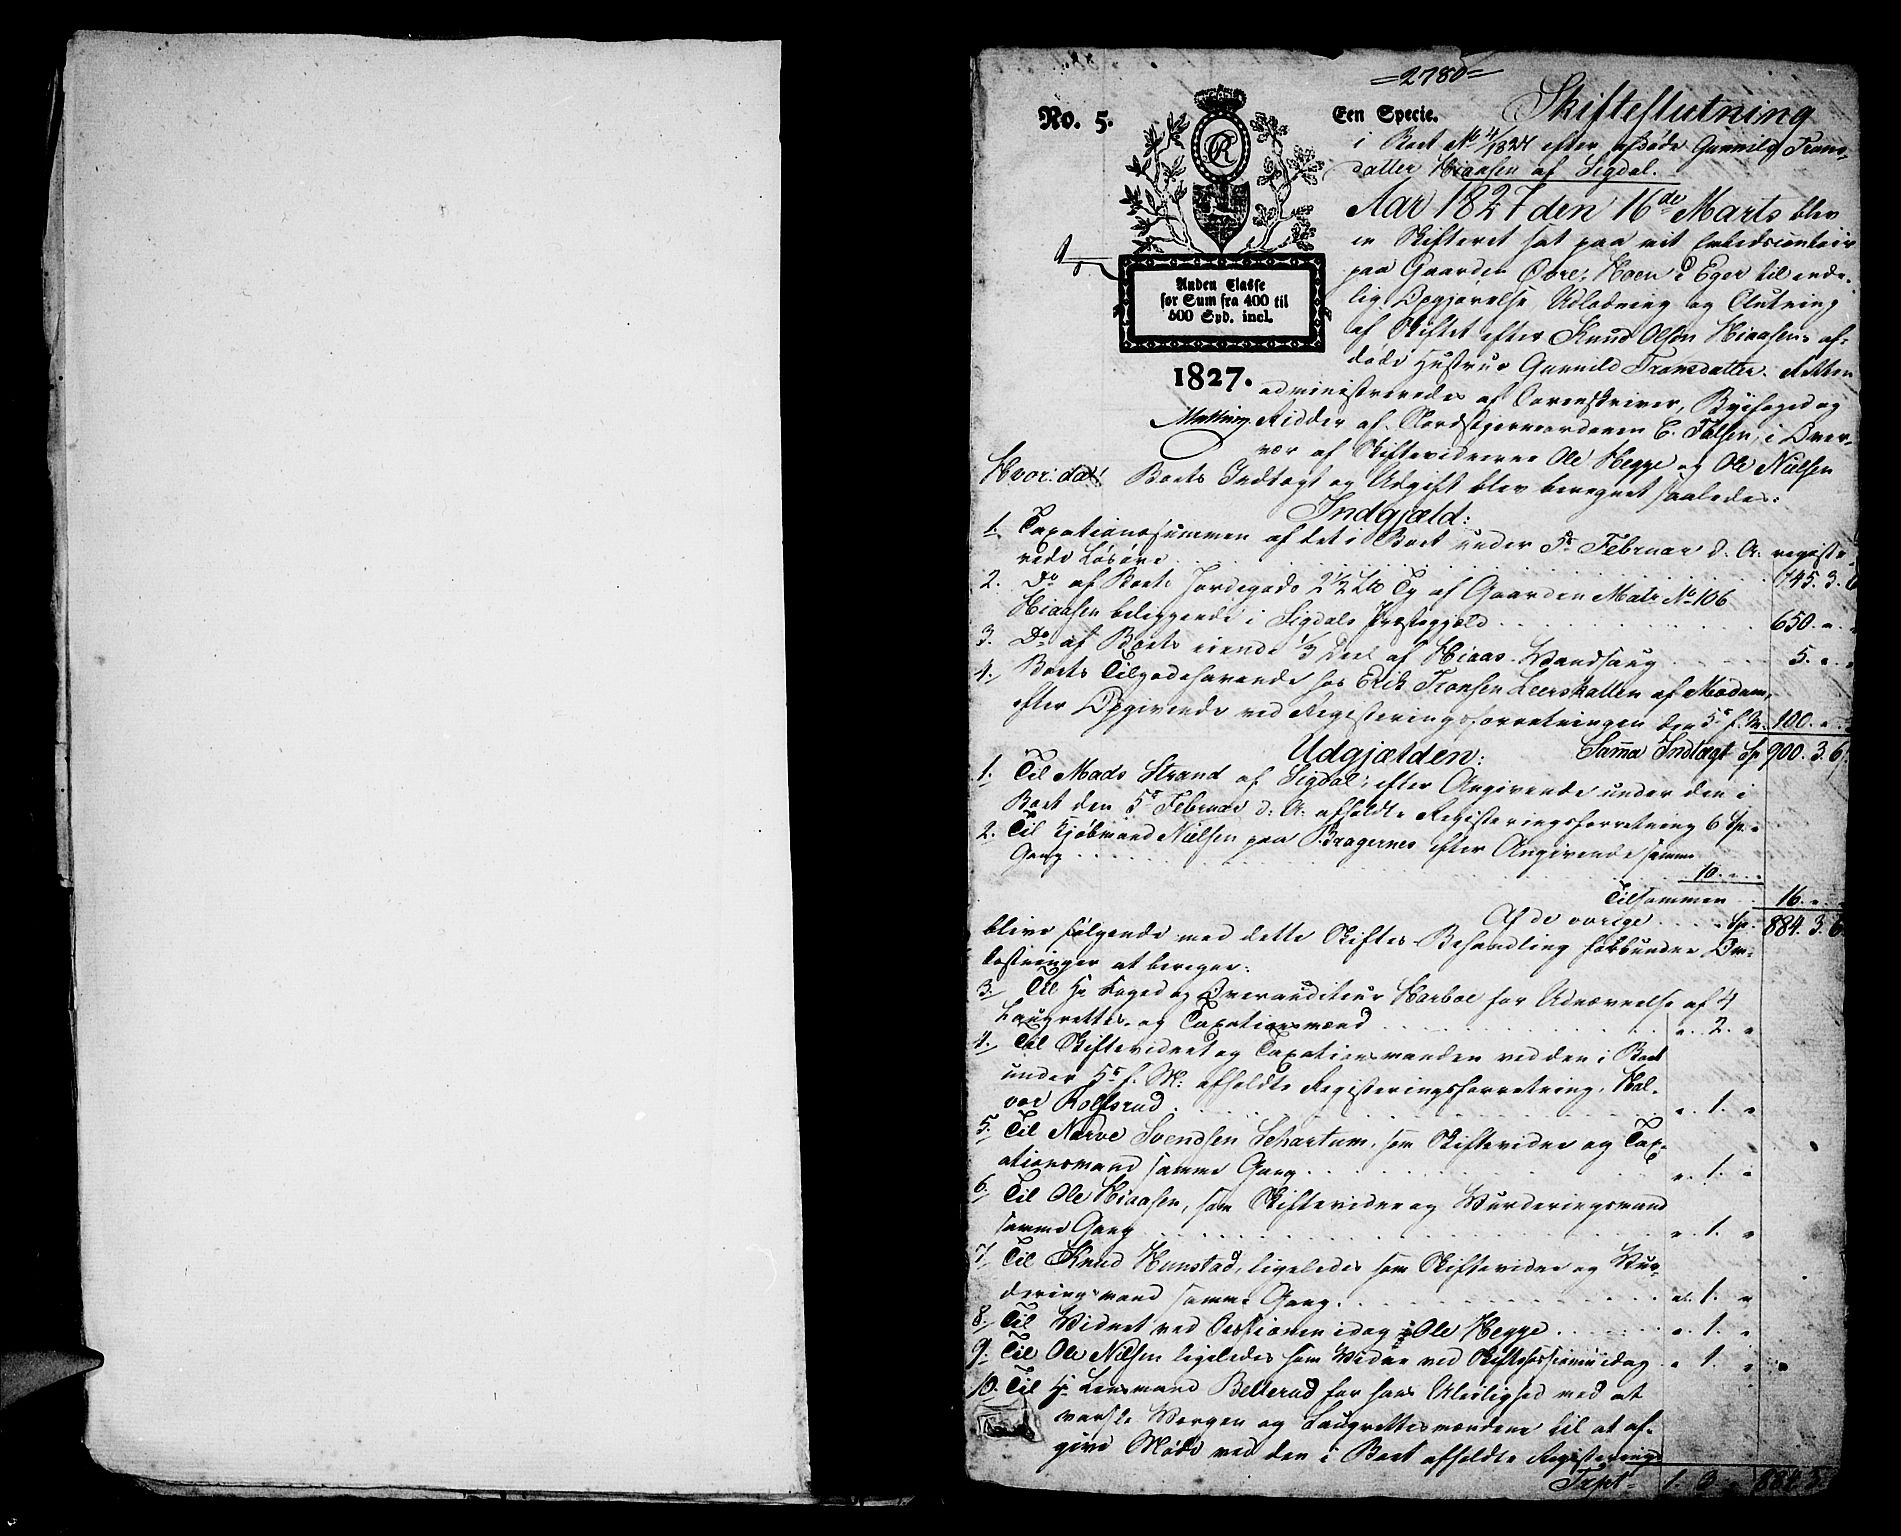 =2780=
No. 5.
Een Specie.
Skifteslutning
i Boet No 4/1827 efter afdøde Gunnild Trons-
datter Hiaasen af Sigdal.
Anden Classe
for Sum fra 400 til
600 Spd. incl.
1827.
Aar 1827 den 16de Marts blev
en Skifteret sat paa mit Embedscontoir
paa Gaarden Øvre Hoen i Eger til ende-
lig Opgjørelse Udlodning og Slutning
af Skiftet efter Knud Olsen Hiaasens af-
døde Hustrue Gunnild Tronsdatter. Retten
administreredes af Sorenskriver, Byefoged og
Ridder af Nordstjerneordenen C. Falsen, i Over-
vær af Skiftevidnerne Ole Hegge og Ole Nielsen
Hvor da Boets Indtægt og Udgift blev beregnet saaledes:
Indgjæld:
1. Taxationssummen af det i Boet under 5te Februar d. A. registre-
rede Løsøre . . . 145. 3. 6
2. Do af Boets Jordegods 2 1/2 Lb Tg af Gaarden Matr. No 106
Hiaasen beliggende i Sigdals Præstegjeld . . . 650. " "
3. Do af Boets eiende 1/3 Deel af Hiaas Vandsaug . . . 5. " "
4. Boets Tilgodehavende hos Erik Tronsen Leerskallen af Modum,
efter Opgivende ved Registreringsforretningen den 5te f. M. 100. " "
Udgjælden: Summa Indtægt Sp 900. 3. 6
1. Til Mads Strand af Sigdal, efter Angivende under den i
Boet den 5te Februar d. A. afholdte Registreringsforretning 6 Sp. "
2. Til Kjøbmand Nielsen paa Bragernes efter Angivende samme
Gang . . . 10. " "
Tilsammen 16. "
Af de øvrige . . . Sp. 884. 3. 6
blive følgende med dette Skiftes Behandling forbundne Om-
kostninger at beregne:
3. Til Hr Foged og Overauditeur Harboe for Udnævnelse af 4
Laugrettes- og Taxationsmænd . . . " 2. "
4. Til Skiftevidnet og Taxationsmanden ved den i Boet
under 5te f. M. afholdte Registreringsforretning, Hal-
vor Kolsrud . . . " 1. "
5. Til Narve Svendsen Schartum, som Skiftevidne og Tax-
ationsmand samme Gang . . . " 1. "
6. Til Ole Hiaasen, som Skiftevidne og Vurderingsmand
samme Gang . . . " 1. "
7. Til Knud Hunstad, ligeledes som Skiftevidne og Vur-
deringsmand samme Gang . . . " 1. "
8. Til Vidnet ved Sessionen idag Ole Hegge . . . " 1. "
9. Til Ole Nielsen ligeledes som Vidne ved Skiftesessionen idag " 1. "
10. Til Hr Lensmand Bellerud for hans Uleilighed med at
varsle Værgen og Laugrettesmændene til at af-
give Møde ved den i Boet afholdte Registrerings
Trspt 1. 3. " 884. 3.